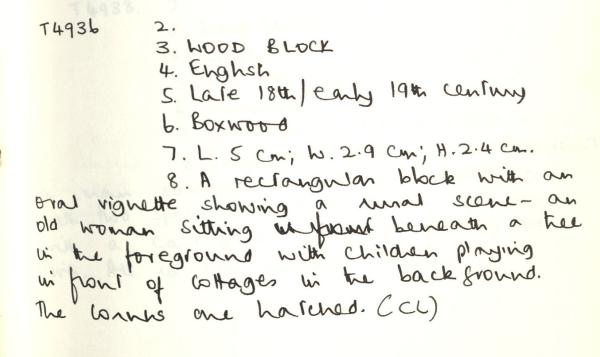 T4936 2.
3. WOOD BLOCK
4. English
5. Late 18th/early 19th century
6. Boxwood
7. L. 5 cm; W. 2.9 cm; H. 2.4 cm.
8. A rectangular block with an
oval vignette showing a rural scene - an
old woman sitting in front beneath a tree
in the foreground with children playing
in front of cottages in the background.
The corners are hatched. (CL)